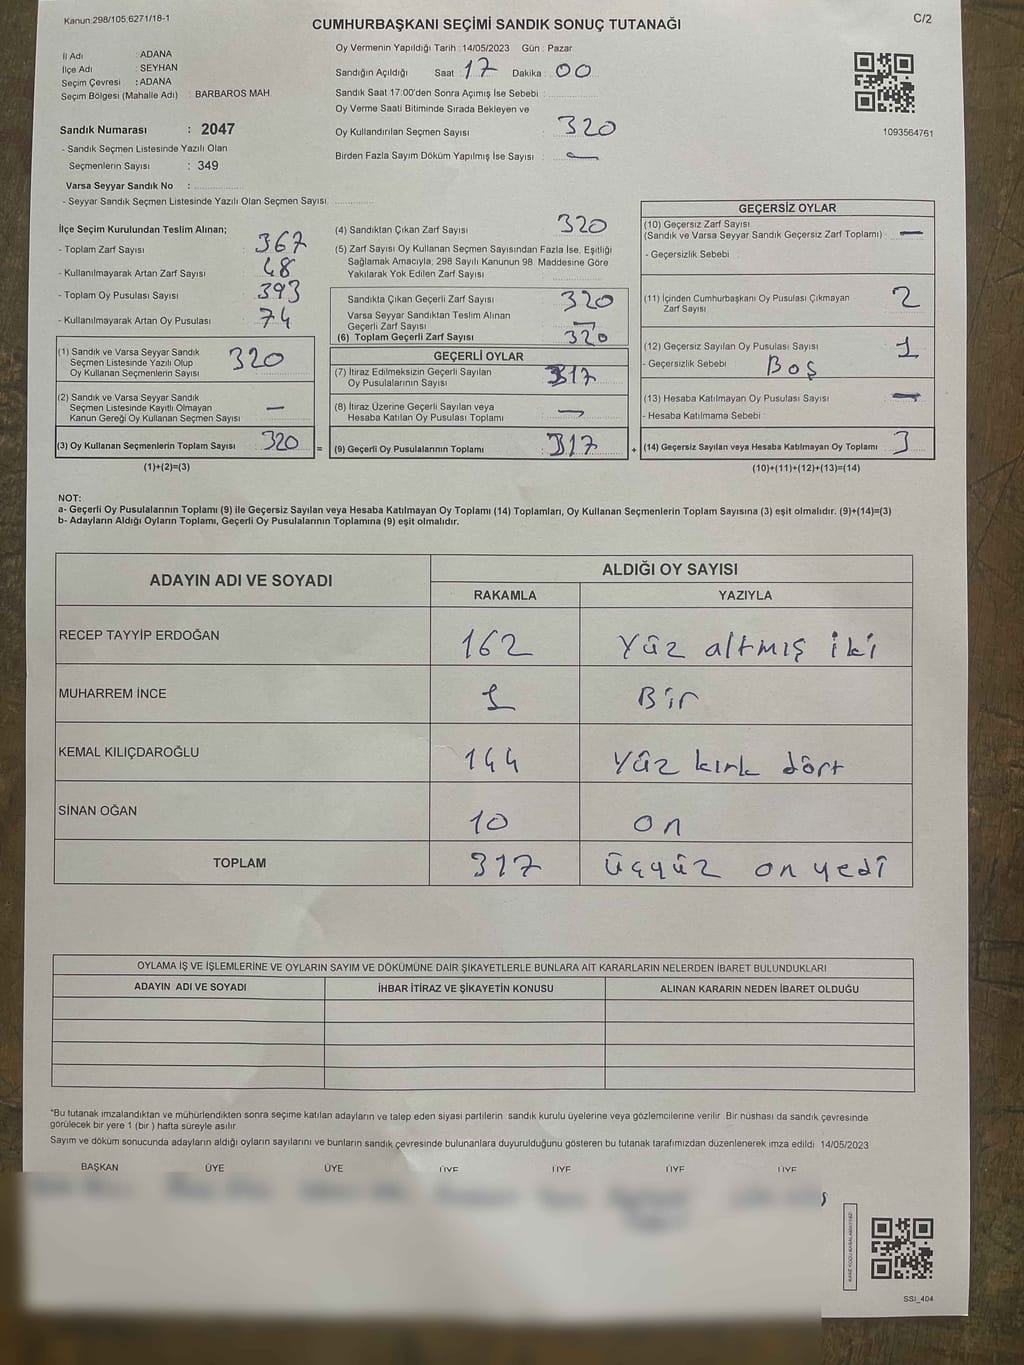 Kanun:298/105,6271/18-1
CUMHURBAŞKANI SEÇİMİ SANDIK SONUÇ TUTANAĞI
C/2
İl Adı : ADANA
İlçe Adı : SEYHAN
Seçim Çevresi : ADANA
Seçim Bölgesi (Mahalle Adı) : BARBAROS MAH.
Sandık Numarası : 2047
- Sandık Seçmen Listesinde Yazılı Olan
Seçmenlerin Sayısı : 349
Varsa Seyyar Sandık No :
- Seyyar Sandık Seçmen Listesinde Yazılı Olan Seçmen Sayısı
Oy Vermenin Yapıldığı Tarih : 14/05/2023 Gün : Pazar
Sandığın Açıldığı Saat 17 Dakika 00
Sandık Saat 17:00'den Sonra Açımış İse Sebebi :
Oy Verme Saati Bitiminde Sırada Bekleyen ve
Oy Kullandırılan Seçmen Sayısı : 320
Birden Fazla Sayım Döküm Yapılmış İse Sayısı : —
1093564761
İlçe Seçim Kurulundan Teslim Alınan;
- Toplam Zarf Sayısı : 367
- Kullanılmayarak Artan Zarf Sayısı : 48
- Toplam Oy Pusulası Sayısı : 393
- Kullanılmayarak Artan Oy Pusulası : 74
(1) Sandık ve Varsa Seyyar Sandık
Seçmen Listesinde Yazılı Olup
Oy Kullanan Seçmenlerin Sayısı 320
(2) Sandık ve Varsa Seyyar Sandık
Seçmen Listesinde Kayıtlı Olmayan
Kanun Gereği Oy Kullanan Seçmen Sayısı —
(3) Oy Kullanan Seçmenlerin Toplam Sayısı 320
(1)+(2)=(3)
(4) Sandıktan Çıkan Zarf Sayısı : 320
(5) Zarf Sayısı Oy Kullanan Seçmen Sayısından Fazla İse, Eşitliği
Sağlamak Amacıyla; 298 Sayılı Kanunun 98. Maddesine Göre
Yakılarak Yok Edilen Zarf Sayısı :
Sandıkta Çıkan Geçerli Zarf Sayısı 320
Varsa Seyyar Sandıktan Teslim Alınan
Geçerli Zarf Sayısı —
(6) Toplam Geçerli Zarf Sayısı : 320
GEÇERLİ OYLAR
(7) İtiraz Edilmeksizin Geçerli Sayılan
Oy Pusulalarının Sayısı 317
(8) İtiraz Üzerine Geçerli Sayılan veya
Hesaba Katılan Oy Pusulası Toplamı —
= (9) Geçerli Oy Pusulalarının Toplamı 317
GEÇERSİZ OYLAR
(10) Geçersiz Zarf Sayısı
(Sandık ve Varsa Seyyar Sandık Geçersiz Zarf Toplamı) : —
- Geçersizlik Sebebi :
(11) İçinden Cumhurbaşkanı Oy Pusulası Çıkmayan
Zarf Sayısı 2
(12) Geçersiz Sayılan Oy Pusulası Sayısı : 1
- Geçersizlik Sebebi : Boş
(13) Hesaba Katılmayan Oy Pusulası Sayısı : —
- Hesaba Katılmama Sebebi :
+ (14) Geçersiz Sayılan veya Hesaba Katılmayan Oy Toplamı 3
(10)+(11)+(12)+(13)=(14)
NOT:
a- Geçerli Oy Pusulalarının Toplamı (9) ile Geçersiz Sayılan veya Hesaba Katılmayan Oy Toplamı (14) Toplamları, Oy Kullanan Seçmenlerin Toplam Sayısına (3) eşit olmalıdır. (9)+(14)=(3)
b- Adayların Aldığı Oyların Toplamı, Geçerli Oy Pusulalarının Toplamına (9) eşit olmalıdır.
ADAYIN ADI VE SOYADI
ALDIĞI OY SAYISI
RAKAMLA YAZIYLA
RECEP TAYYİP ERDOĞAN 162 Yüz altmış iki
MUHARREM İNCE 1 Bir
KEMAL KILIÇDAROĞLU 144 Yüz kırk dört
SİNAN OĞAN 10 on
TOPLAM 317 üçyüz on yedi
OYLAMA İŞ VE İŞLEMLERİNE VE OYLARIN SAYIM VE DÖKÜMÜNE DAİR ŞİKAYETLERLE BUNLARA AİT KARARLARIN NELERDEN İBARET BULUNDUKLARI
ADAYIN ADI VE SOYADI İHBAR İTİRAZ VE ŞİKAYETİN KONUSU ALINAN KARARIN NEDEN İBARET OLDUĞU
*Bu tutanak imzalandıktan ve mühürlendikten sonra seçime katılan adayların ve talep eden siyasi partilerin sandık kurulu üyelerine veya gözlemcilerine verilir. Bir nüshası da sandık çevresinde
görülecek bir yere 1 (bir) hafta süreyle asılır.
Sayım ve döküm sonucunda adayların aldığı oyların sayılarını ve bunların sandık çevresinde bulunanlara duyurulduğunu gösteren bu tutanak tarafımızdan düzenlenerek imza edildi. 14/05/2023
BAŞKAN ÜYE ÜYE ÜYE ÜYE ÜYE ÜYE
SSI_404